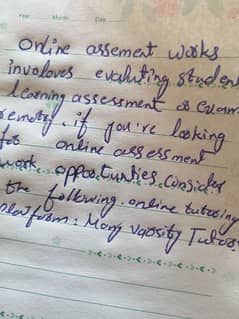 Year Month Date
Online assement works
involoves evaluting studen
learning assessment or exam
remotry. if you're looking
for online assessment
work opportunties consider
the following. online tutoring
platform: Many varsity Tutors